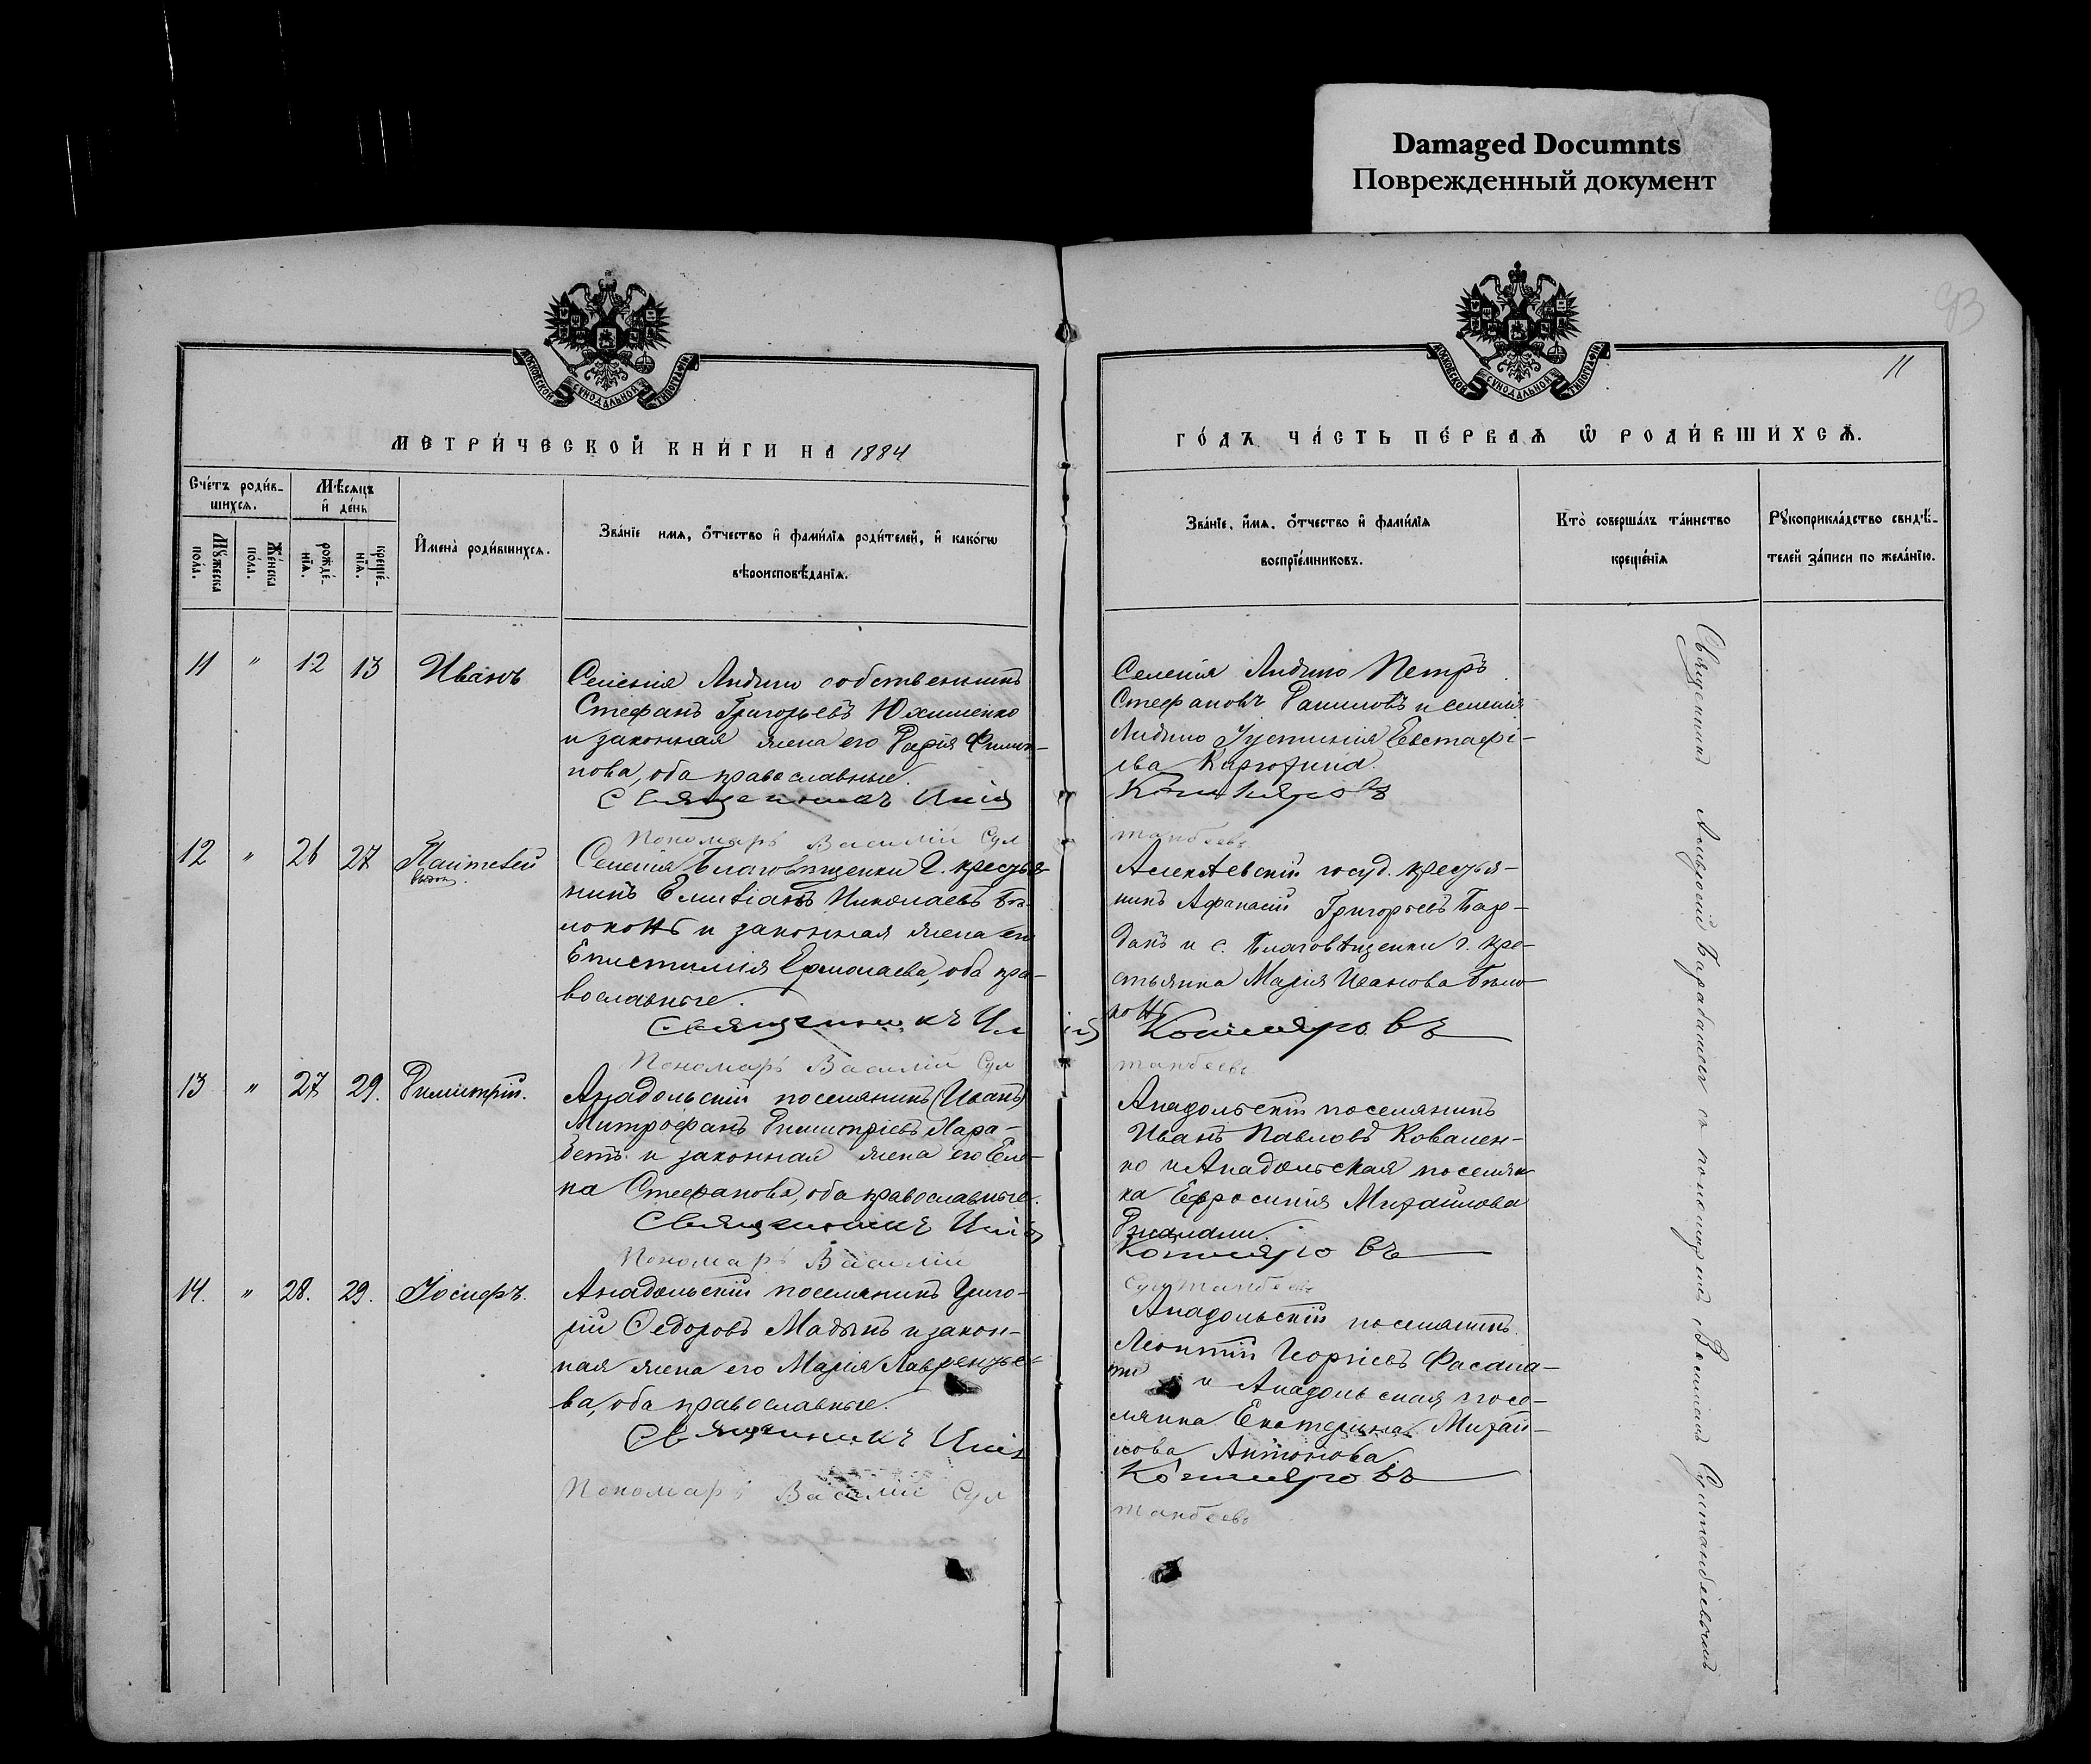 Damaged Documnts
Поврежденный документ
93
11
МОСКОВСКОЙ СѴНОДАЛЬНОЙ ТИПОГРАФІИ
МОСКОВСКОЙ СѴНОДАЛЬНОЙ ТИПОГРАФІИ
МЕТРИ́ЧЕСКОЙ КНИ́ГИ НА 1884
ГО́ДЪ ЧА́СТЬ ПЕ́РВАѦ Ѽ РОДИ́ВШИХСѦ.
Сче́тъ роди́в-
шихсѧ.
Мѣ́сѧцъ
и҆ де́нь
Мꙋ́жеска
по́ла.
Же́нска
по́ла.
рожде́-
нїѧ.
креще́-
нїѧ.
И҆мена̀ роди́вшихсѧ.
Зва́нїе имѧ, о҆́тчество и҆ фами́лїѧ роди́телей, и҆ како́гѡ
вѣроисповѣ́данїѧ.
Зва́нїе, и҆́мѧ, о҆́тчество и҆ фами́лїѧ
воспрїе́мниковъ.
Кто̀ соверша́лъ та́инство
креще́нїѧ
Рꙋкоприкла́дство свидѣ́-
телей за́писи по жела́нїю.
11 " 12 13 Иванъ
Селенія Андино собственникъ
Стефанъ Григорьевъ Юхименко
и законная жена его Дарія Филип-
пова, оба православные.
Священникъ Илія
Пономарь Василій Сул
Селенія Андино Петръ
Стефановъ Даниловъ и селенія
Андино Іустинія Евстафі-
ева
Котляровъ
танбеевъ
12 " 26 27
Селенія Благовѣщенки г. крестья-
нинъ Емиліанъ Николаевъ Бѣ-
локонь и законная жена его
Епистимія Ермолаева, оба пра-
вославные.
Священникъ Ил ія
Пономарь Василій Сул
Алексѣевскій госуд. крестья-
нинъ Афанасій Григорьевъ Бар-
данъ и с. Благовѣщенки г. кре-
стьянка Марія Иванова Бѣло-
конь
Котляровъ
танбеевъ
13 " 27 29. Димитрій.
Анадольскій поселянинъ (Иванъ)
Митрофанъ Димитріевъ Хара-
бетъ и законная жена его Еле-
на Стефанова, оба православные.
Священникъ Илія
Пономарь Василій
Анадольскій поселянинъ
Иванъ Павловъ Ковален-
ко и Анадольская поселян-
ка Ефросинія Михайлова
Котляровъ
Султанбеевъ
14. " 28. 29. Іосифъ.
Анадольскій поселянинъ Григо-
рій Ѳедоровъ Мадыкъ и закон-
ная жена его Марія Лаврентье-
ва, оба православные.
Священникъ Илія
Пономарь Василій Сул
Анадольскій поселянинъ
Леонтій Георгіевъ Фасола-
ти и Анадольская посе-
лянка Екатерина Михай-
лова Антонова
Котляровъ
танбеевъ
Священникъ Амвросій Барабашъ съ пономаремъ Василіемъ Султанбеевымъ